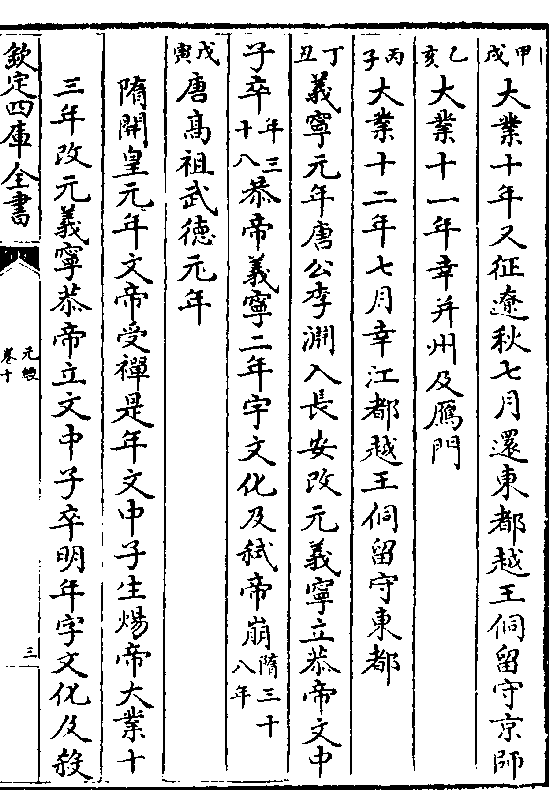 甲戌 大業十年又征遼秋七月還東都越王侗留守京師
乙亥 大業十一年幸并州及鴈門
丙子 大業十二年七月幸江都越王侗留守東都
丁丑 義寧元年唐公李淵入長安改元義寧立恭帝文中
子卒年三十八恭帝義寧二年宇文化及弑帝崩隋三十八年
戊寅 唐髙祖武德元年
隋開皇元年文帝受禪是年文中子生煬帝大業十
三年改元義寧恭帝立文中子卒明年宇文化及殺
欽定四庫全書
元經
卷十
三